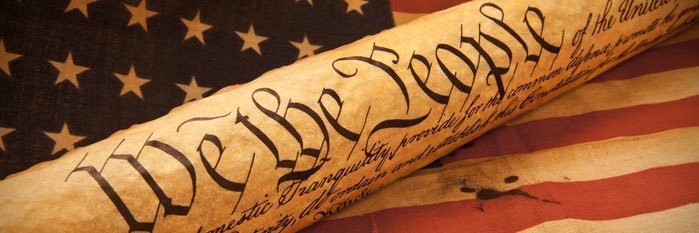 We the People of the United
omestic Tranquility, provide for the common defence, promote the
do ordain and establish this Constitution